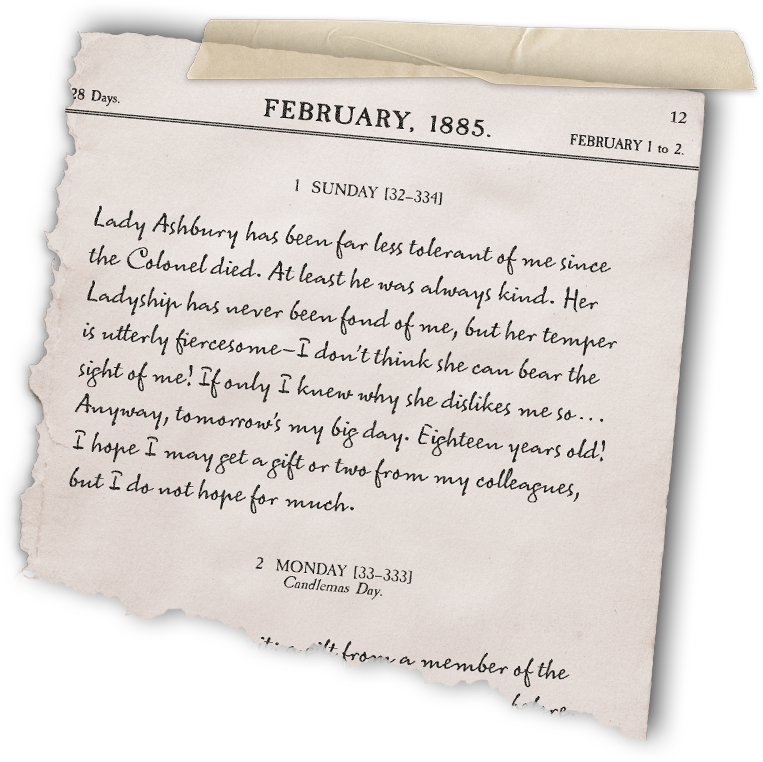 28 Days.
FEBRUARY, 1885.
12
FEBRUARY 1 to 2.
1 SUNDAY [32–334]
Lady Ashbury has been far less tolerant of me since
the Colonel died. At least he was always kind. Her
Ladyship has never been fond of me, but her temper
is utterly fiercesome–I don't think she can bear the
sight of me! If only I knew why she dislikes me so...
Anyway, tomorrow's my big day. Eighteen years old!
I hope I may get a gift or two from my colleagues,
but I do not hope for much.
2 MONDAY [33–333]
Candlemas Day.
gift from a member of the